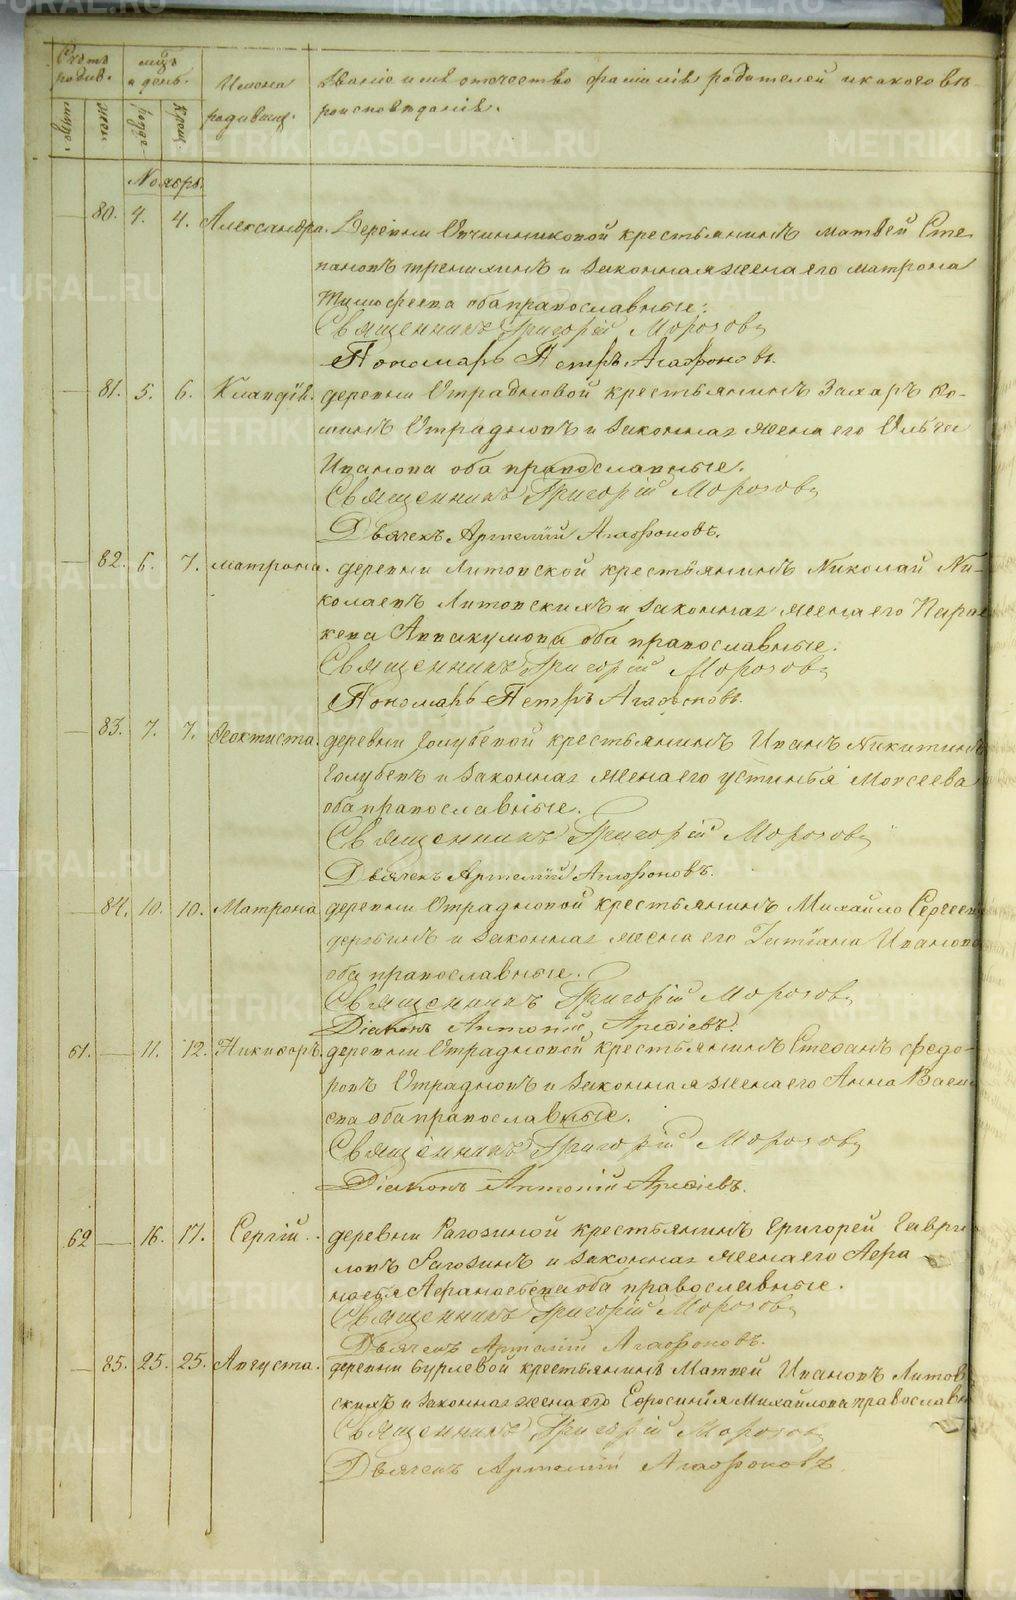 Счетъ родив.
мцъ и день.
Имена родивших.
Званіе имя отчество фамилія родителей и какого вѣ-
роисповѣданія.
мужс. женс. рожде. крещ.
Ноябрь.
— 80. 4. 4. Александра. Деревни Овчинниковой крестьянинъ Матвей Сте-
пановъ и законная жена его Матрона
Тимофеева оба православные:
Священникъ Григорій Морозовъ
Пономарь Петръ Агафоновъ.
— 81. 5. 6. Клавдія. деревни Отрадновой крестьянинъ Захаръ Фо-
минъ Отрадновъ и законная жена его Ольга
Иванова оба православные.
Священникъ Григорій Морозовъ
Дьячекъ Артемій Агафоновъ.
— 82. 6. 7. Матрона. деревни Литовской крестьянинъ Николай Ни-
колаевъ Литовскихъ и законная жена его Парас-
кева Аввакумова оба православные.
Священникъ Григорій Морозовъ
Пономарь Петръ Агафоновъ.
— 83. 7. 7. Феоктиста. деревни Голубевой крестьянинъ Иванъ Никитинъ
Голубевъ и законная жена его Устинья Моисеева
оба православные.
Священникъ Григорій Морозовъ
Дьячекъ Артемій Агафоновъ.
— 84. 10. 10. Матрона деревни Отрадновой крестьянинъ Михайло Сергеевъ
и законная жена его Татіана Иванова
оба православные.
Священникъ Григорій Морозовъ
Діаконъ Антоній Арефіевъ.
61. — 11. 12. Никифоръ. деревни Отрадновой крестьянинъ Стефанъ Федо-
ровъ Отрадновъ и законная жена его Анна Васи
ева оба православные.
Священникъ Григорій Морозовъ
Діаконъ Антоній Арефіевъ.
62 — 16. 17. Сергій. деревни Рагозиной крестьянинъ Григорей Гаври-
ловъ Рагозинъ и законная жена его Афа-
насья Афанасьева оба православные.
Священникъ Григорій Морозовъ
Дьячекъ Артемій Агафоновъ.
— 85. 25. 25. Августа. деревни Бурлевой крестьянинъ Матвей Ивановъ Литов
скихъ и законная жена его Ефросинія Михайлова православн
Священникъ Григорій Морозовъ
Дьячекъ Артемій Агафоновъ.
METRIKI.GASO-URAL.RU